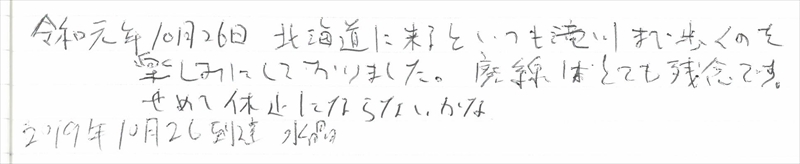 令和元年10月26日 北海道に来るといつも滝川まで歩くのを
楽しみにしておりました。廃線はとても残念です。
せめて休止にならないかな
2019年10月26到達 水晶